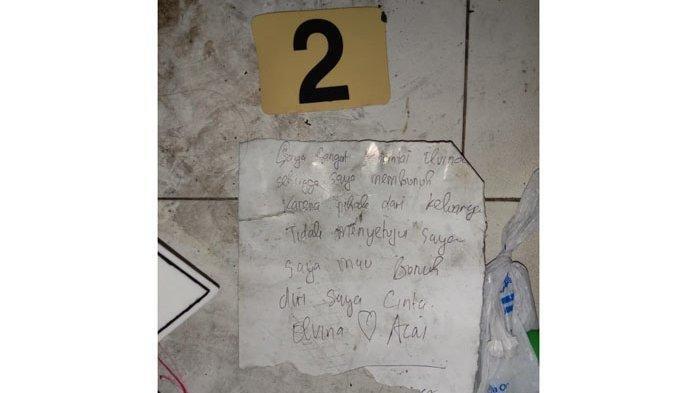 2
Saya Sangat Elvina
sehingga saya membunuh
Karena pihak dari keluarga
Tidak Menyetujui Saya
Saya mau Bunuh
diri Saya Cinta.
Elvina ♡ Acai